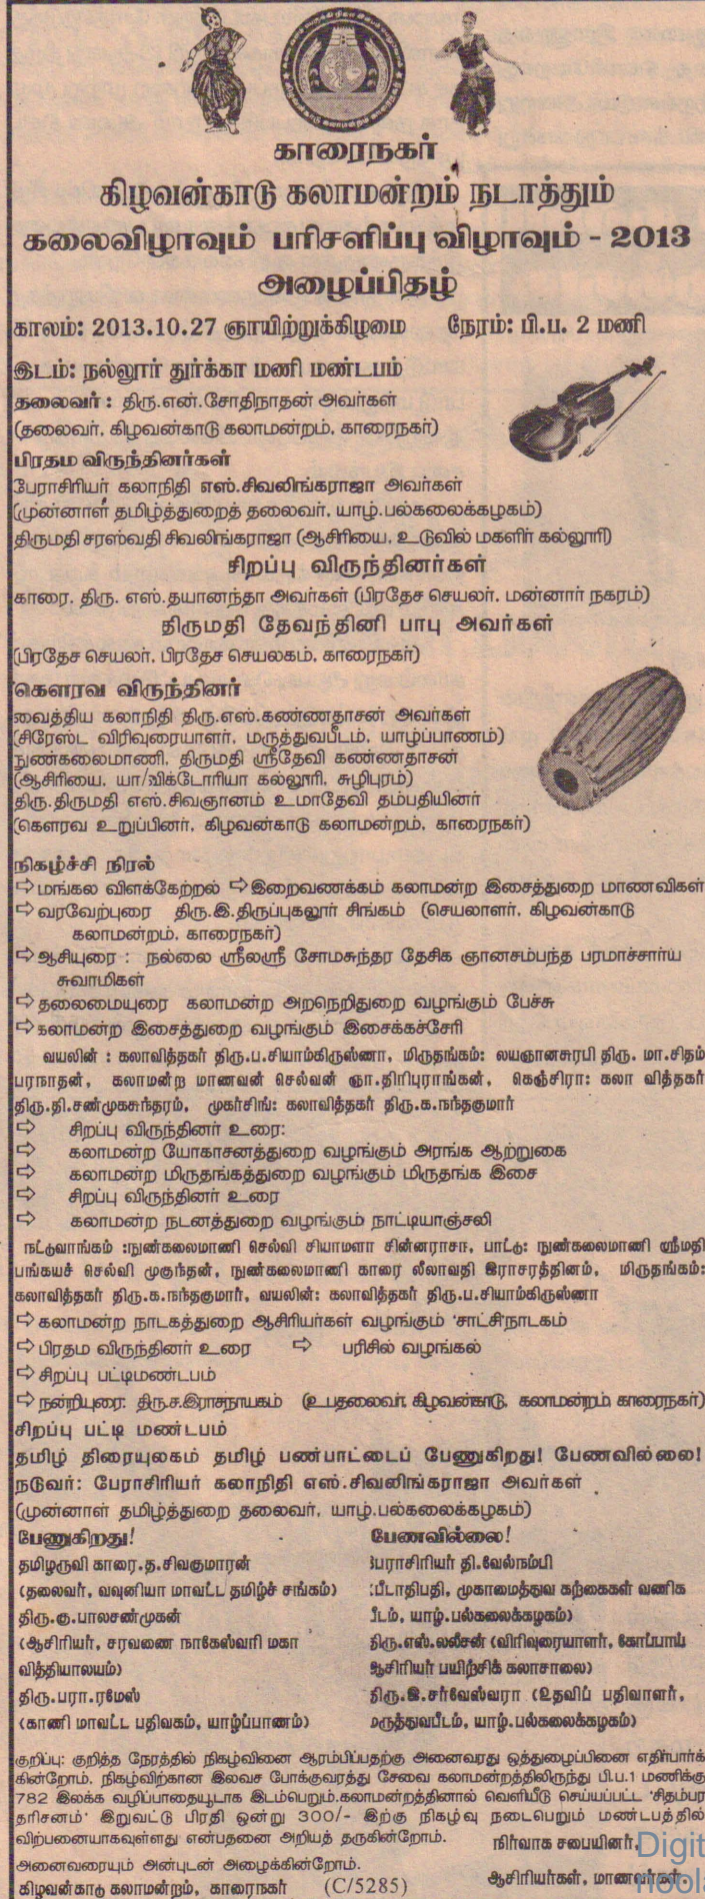 காரைநகர்
கிழவன்காடு கலாமன்றம் நடாத்தும்
கலைவிழாவும் பரிசளிப்பு விழாவும் - 2013
அழைப்பிதழ்
காலம்: 2013.10.27 ஞாயிற்றுக்கிழமை நேரம்: பி.ப. 2 மணி
இடம்: நல்லூர் துர்க்கா மணி மண்டபம்
தலைவர் : திரு.என்.சோதிநாதன் அவர்கள்
(தலைவர், கிழவன்காடு கலாமன்றம், காரைநகர்)
பிரதம விருந்தினர்கள்
பேராசிரியர் கலாநிதி எஸ்.சிவலிங்கராஜா அவர்கள்
(முன்னாள் தமிழ்த்துறைத் தலைவர், யாழ்.பல்கலைக்கழகம்)
திருமதி சரஸ்வதி சிவலிங்கராஜா (ஆசிரியை, உடுவில் மகளிர் கல்லூரி)
சிறப்பு விருந்தினர்கள்
காரை, திரு. எஸ்.தயானந்தா அவர்கள் (பிரதேச செயலர், மன்னார் நகரம்)
திருமதி தேவந்தினி பாபு அவர்கள்
(பிரதேச செயலர், பிரதேச செயலகம், காரைநகர்)
கௌரவ விருந்தினர்
வைத்திய கலாநிதி திரு.எஸ்.கண்ணதாசன் அவர்கள்
(சிரேஸ்ட விரிவுரையாளர், மருத்துவபீடம், யாழ்ப்பாணம்)
நுண்கலைமாணி, திருமதி ஸ்ரீதேவி கண்ணதாசன்
(ஆசிரியை, யா/விக்டோரியா கல்லூரி, சுழிபுரம்)
திரு.திருமதி எஸ்.சிவஞானம் உமாதேவி தம்பதியினர்
(கௌரவ உறுப்பினர், கிழவன்காடு கலாமன்றம், காரைநகர்)
நிகழ்ச்சி நிரல்
⇨மங்கல விளக்கேற்றல் ⇨இறைவணக்கம் கலாமன்ற இசைத்துறை மாணவிகள்
⇨வரவேற்புரை திரு.இ.திருப்புகலூர் சிங்கம் (செயலாளர், கிழவன்காடு
கலாமன்றம், காரைநகர்)
⇨ஆசியுரை : நல்லை ஸ்ரீலஸ்ரீ சோமசுந்தர தேசிக ஞானசம்பந்த பரமாச்சார்ய
சுவாமிகள்
⇨தலைமையுரை கலாமன்ற அறநெறிதுறை வழங்கும் பேச்சு
⇨கலாமன்ற இசைத்துறை வழங்கும் இசைக்கச்சேரி
வயலின் : கலாவித்தகர் திரு.ப.சியாம்கிருஸ்ணா, மிருதங்கம்: லயஞானசுரபி திரு. மா.சிதம்
பரநாதன், கலாமன்ற மாணவன் செல்வன் ஞா.திரிபுராங்கன், கெஞ்சிரா: கலா வித்தகர்
திரு.தி.சண்முகசுந்தரம், முகர்சிங்: கலாவித்தகர் திரு.க.நந்தகுமார்
⇨ சிறப்பு விருந்தினர் உரை:
⇨ கலாமன்ற யோகாசனத்துறை வழங்கும் அரங்க ஆற்றுகை
⇨ கலாமன்ற மிருதங்கத்துறை வழங்கும் மிருதங்க இசை
⇨ சிறப்பு விருந்தினர் உரை
⇨ கலாமன்ற நடனத்துறை வழங்கும் நாட்டியாஞ்சலி
நட்டுவாங்கம் :நுண்கலைமாணி செல்வி சியாமளா சின்னராசா, பாட்டு: நுண்கலைமாணி ஸ்ரீமதி
பங்கயச் செல்வி முகுந்தன், நுண்கலைமாணி காரை லீலாவதி இராசரத்தினம், மிருதங்கம்:
கலாவித்தகர் திரு.க.நந்தகுமார், வயலின்: கலாவித்தகர் திரு.ப.சியாம்கிருஸ்ணா
⇨கலாமன்ற நாடகத்துறை ஆசிரியர்கள் வழங்கும் 'சாட்சி'நாடகம்
⇨பிரதம விருந்தினர் உரை ⇨ பரிசில் வழங்கல்
⇨சிறப்பு பட்டிமண்டபம்
⇨நன்றியுரை: திரு.ச.இராசநாயகம் (உபதலைவர், கிழவன்காடு, கலாமன்றம் காரைநகர்)
சிறப்பு பட்டி மண்டபம்
தமிழ் திரையுலகம் தமிழ் பண்பாட்டைப் பேணுகிறது! பேணவில்லை!
நடுவர்: பேராசிரியர் கலாநிதி எஸ்.சிவலிங்கராஜா அவர்கள்
(முன்னாள் தமிழ்த்துறை தலைவர், யாழ்.பல்கலைக்கழகம்)
பேணுகிறது!
தமிழருவி காரை.த.சிவகுமாரன்
(தலைவர், வவுனியா மாவட்ட தமிழ்ச் சங்கம்)
திரு.கு.பாலசண்முகன்
(ஆசிரியர், சரவணை நாகேஸ்வரி மகா
வித்தியாலயம்)
திரு.பரா.ரமேஸ்
(காணி மாவட்ட பதிவகம், யாழ்ப்பாணம்)
பேணவில்லை!
பேராசிரியர் தி.வேல்நம்பி
(பீடாதிபதி, முகாமைத்துவ கற்கைகள் வணிக
பீடம், யாழ்.பல்கலைக்கழகம்)
திரு.எஸ்.லலீசன் (விரிவுரையாளர், கோப்பாய்
ஆசிரியர் பயிற்சிக் கலாசாலை)
திரு.இ.சர்வேஸ்வரா (உதவிப் பதிவாளர்,
மருத்துவபீடம், யாழ்.பல்கலைக்கழகம்)
குறிப்பு: குறித்த நேரத்தில் நிகழ்வினை ஆரம்பிப்பதற்கு அனைவரது ஒத்துழைப்பினை எதிர்பார்க்
கின்றோம். நிகழ்விற்கான இலவச போக்குவரத்து சேவை கலாமன்றத்திலிருந்து பி.ப.1 மணிக்கு
782 இலக்க வழிப்பாதையூடாக இடம்பெறும்.கலாமன்றத்தினால் வெளியீடு செய்யப்பட்ட 'சிதம்பர
தரிசனம்' இறுவட்டு பிரதி ஒன்று 300/- இற்கு நிகழ்வு நடைபெறும் மண்டபத்தில்
விற்பனையாகவுள்ளது என்பதனை அறியத் தருகின்றோம்.
அனைவரையும் அன்புடன் அழைக்கின்றோம்.
நிர்வாக சபையினர்,
ஆசிரியர்கள், மாணவர்கள்.
கிழவன்காடு கலாமன்றம், காரைநகர் (C/5285)
Digit
noola